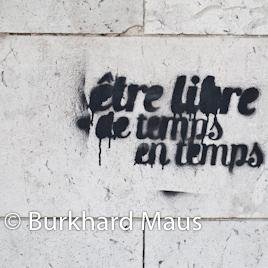 être libre
de temps
en temps
© Burkhard Maus